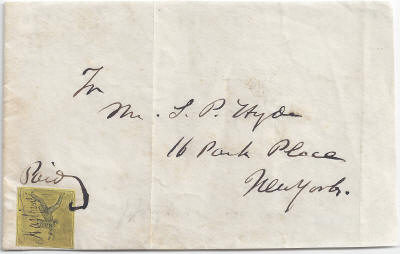 To
Mr. S. P. Hyde
16 Park Place
New York.
Paid